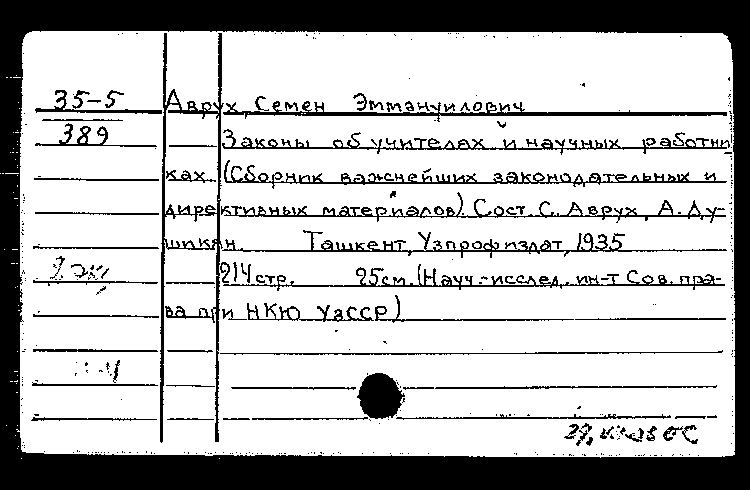 35-5 Аврух, Семен Эммануилович
389 Законы об учителях и научных работни
ках. (Сборник важнейших законодательных и
директивных материалов) Сост. С. Аврух, А. Ду-
шикян. Ташкент, Узпрофиздат, 1935
214 стр. 25см. (Науч.-исслед. ин-т Сов. пра-
ва при НКЮ УзССР)